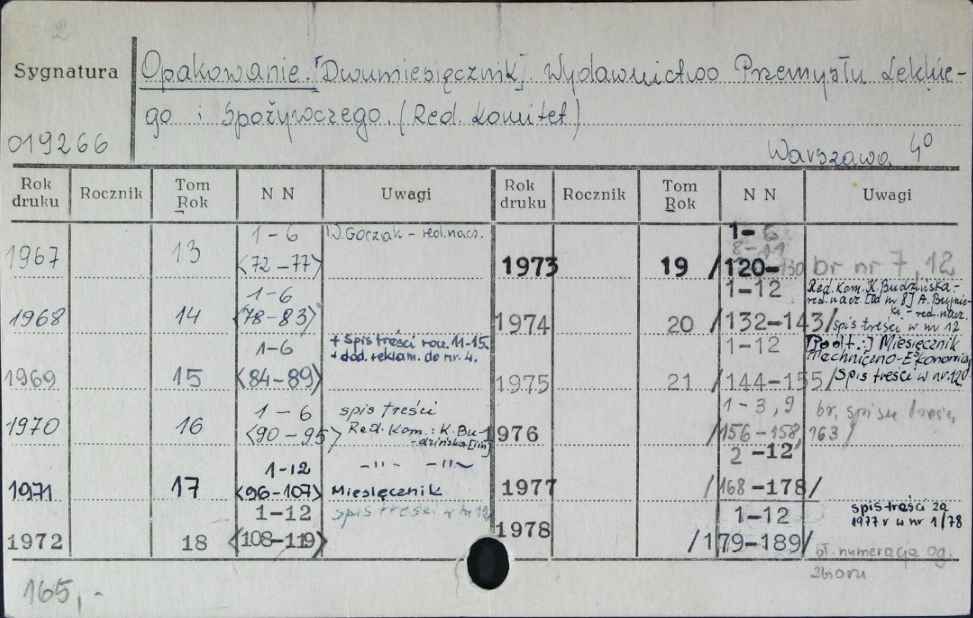 2
Sygnatura
Opakowanie. [Dwumiesięcznik] Wydawnictwo Przemysłu Lekkie-
go i Spożywczego. (Red. Komitet)
019266
Warszawa 4°
Rok druku Rocznik Tom Rok N N Uwagi Rok druku Rocznik Tom Rok N N Uwagi
1967 13 1-6 <72-77> W. Goczak - red. nacz.
1968 14 1-6 <78-83>
1969 15 1-6 <84-89> + spis treści rocz. 11-15.
+ dod. reklam. do nr. 4.
1970 16 1-6 <90-95> spis treści
Red. Kom.: K. Bu-
dzińska [in]
1971 17 1-12 <96-107> -"- -"-
Miesięcznik
1972 18 1-12 <108-119> spis treści w nr 12
1973 19 1-6 8-11 /120-130 br nr 7, 12
1974 20 1-12 /132-143/ Red. Kom. K. Budzińska-
red. nacz. [od nr 8]
red. nacz.
spis treści w nr 12
1975 21 1-12 /144-155/ [Podt.:] Miesięcznik
Techniczno-Ekonomicz
spis treści w nr. 12
1976 1-3, 9 /156-158, 163/ br. spisu treści
1977 2-12 /168-178/
1978 1-12 /179-189/ spis treści za
1977 r w nr 1/78
bł. numeracja og.
zbioru
165,-